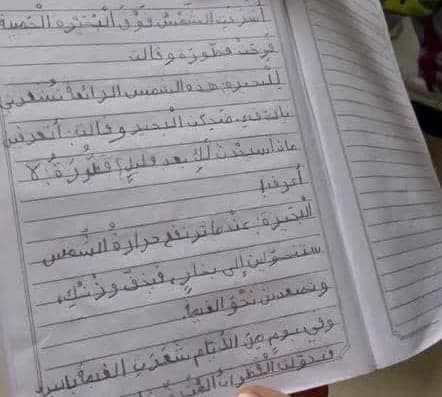 أشرقت الشمس فوق البحيرة الجميلة
فرحت قطورة وقالت
للبحيرة: هذه الشمس الرائعة تشعرني
بالدفء ضحكت البحيرة وقالت: أتعرفين
ماذا سيحدث لك بعد قليل؟ قطورة: لا
أعرف!
البحيرة: عندما ترتفع حرارة الشمس
ستتحولين إلى بخار، فيخف وزنك،
وتصعدين نحو الغيمة
وفي يوم من الأيام شعرت الغيمة
فتحولت القطرات